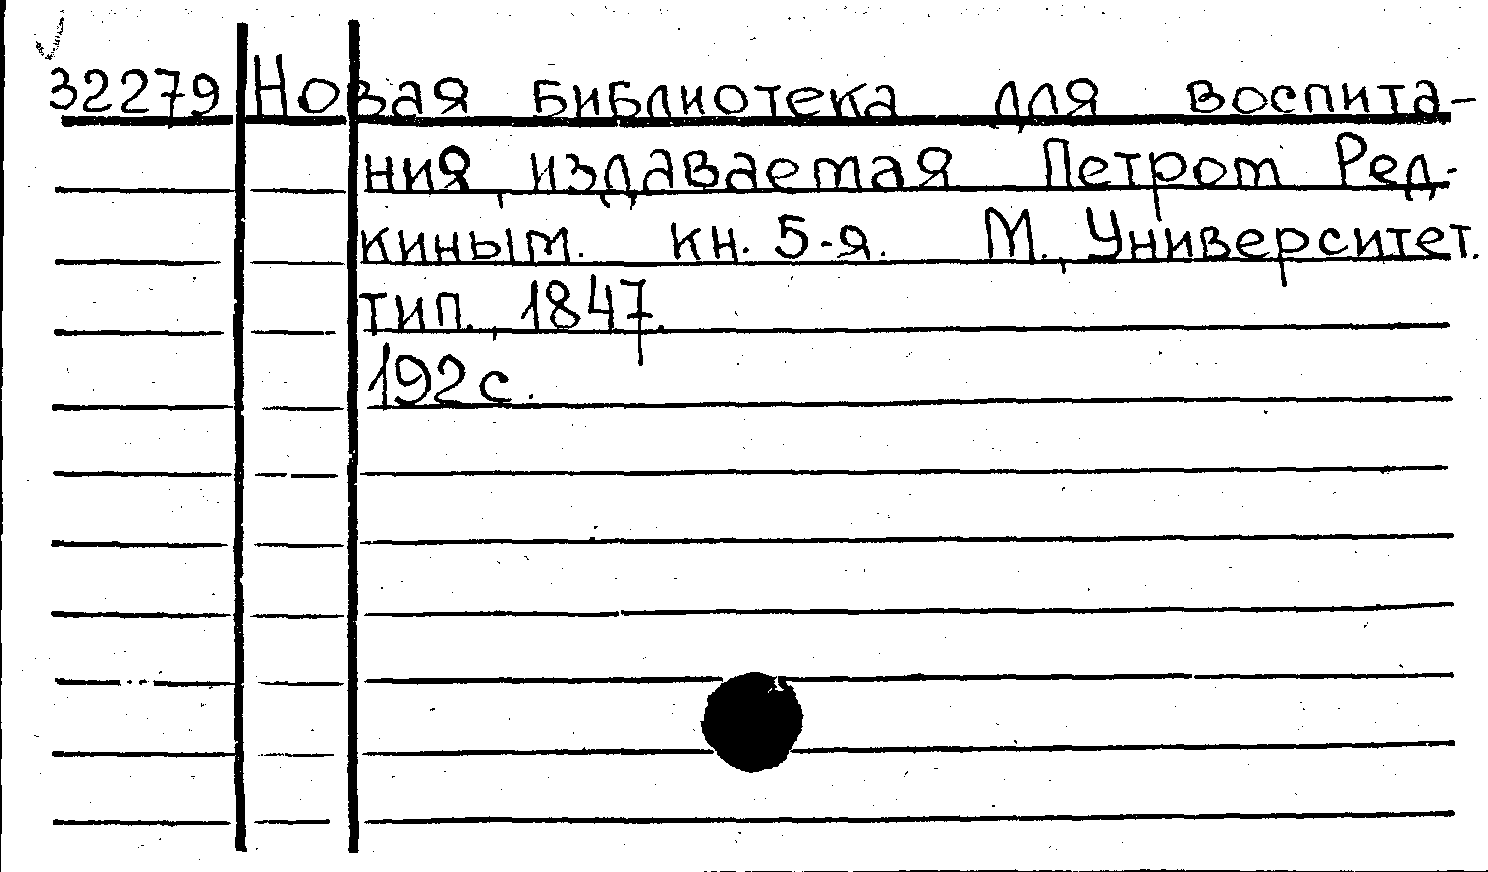 32279 Новая библиотека для воспита-
ния, издаваемая Петром Ред-
киным. кн. 5-я. М., Университет.
тип., 1847.
192 с.